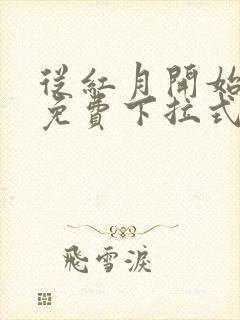 從紅月開始
免費下拉式
飛雪淚